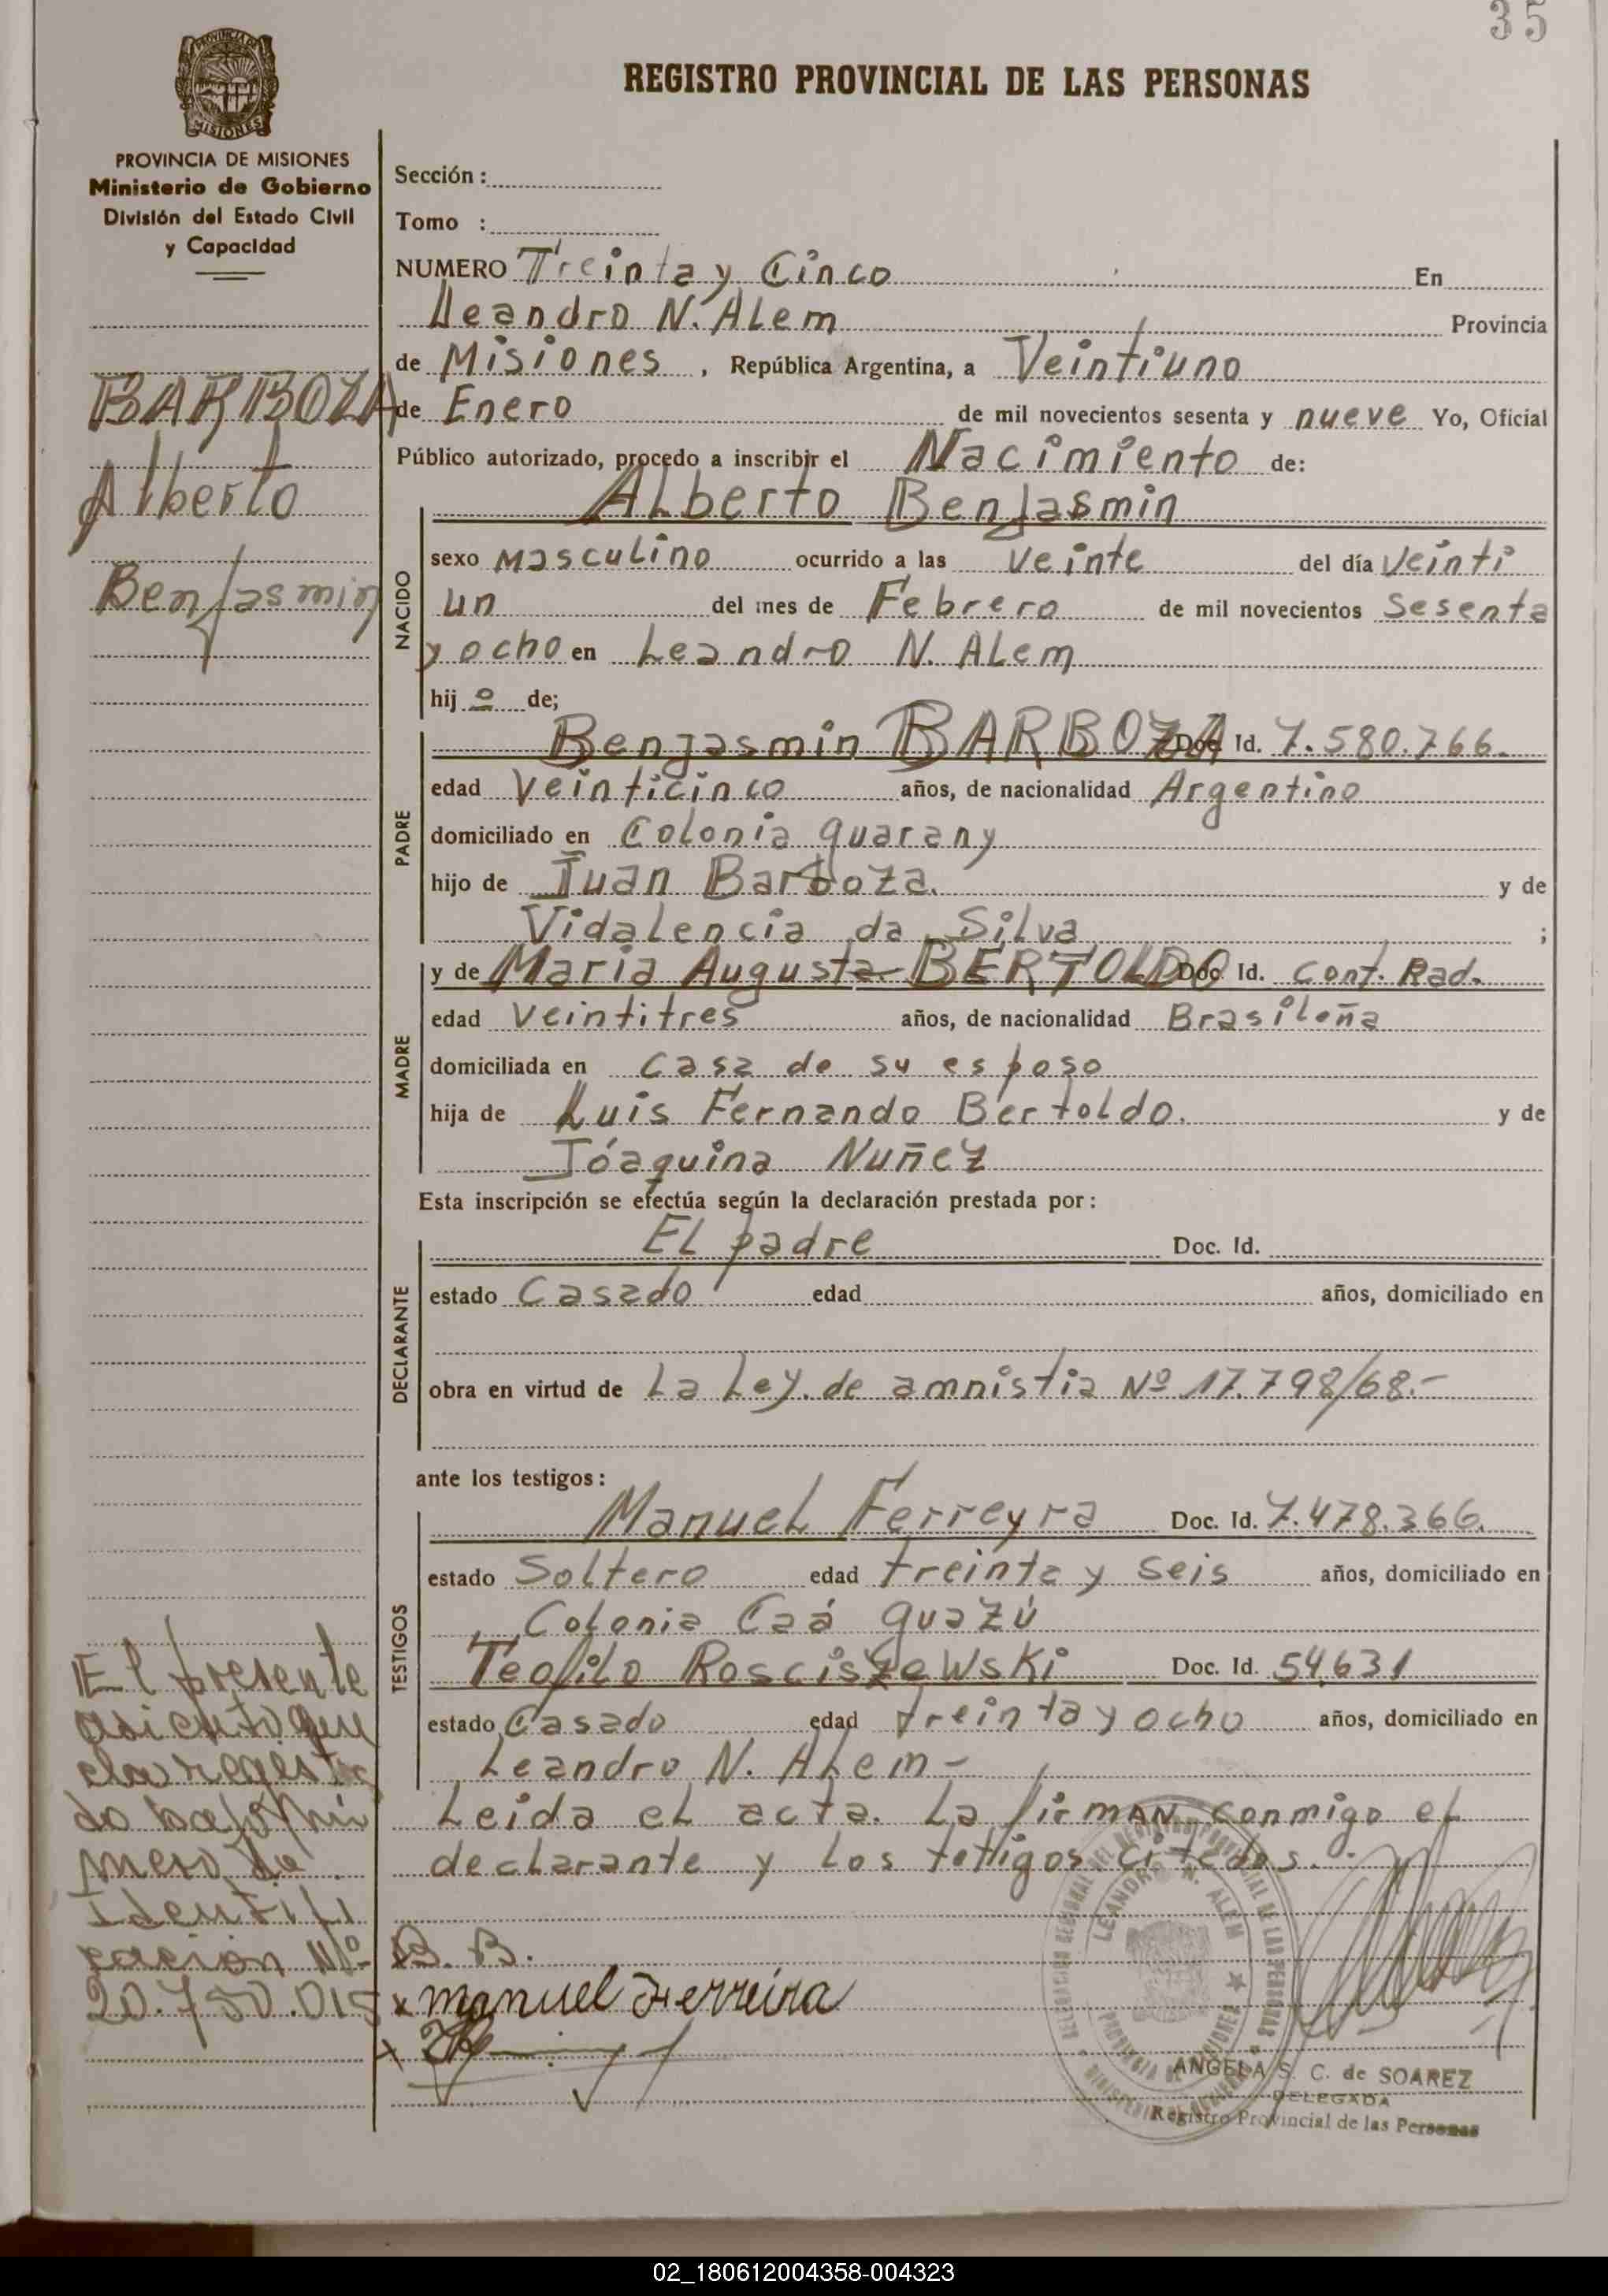 35
REGISTRO PROVINCIAL DE LAS PERSONAS
PROVINCIA DE MISIONES
MISIONES
PROVINCIA DE MISIONES
Ministerio de Gobierno
División del Estado Civil
y Capacidad
BARBOZA
Alberto
Benjasmin
Sección :
Tomo :
NUMERO Treinta y Cinco En
Leandro N. Alem Provincia
de Misiones , República Argentina, a Veintiuno
de Enero de mil novecientos sesenta y nueve Yo, Oficial
Público autorizado, procedo a inscribir el Nacimiento de:
NACIDO
Alberto Benjasmin
sexo masculino ocurrido a las veinte del día veinti
un del mes de Febrero de mil novecientos Sesenta
y ocho en Leandro N. Alem
hij o de;
PADRE
Benjasmin BARBOZA Doc. Id. 7.580.766.
edad Veinticinco años, de nacionalidad Argentino
domiciliado en Colonia guarany
hijo de Juan Barboza. y de
Vidalencia da Silva ;
MADRE
y de Maria Augusta BERTOLDO Doc. Id. Cont. Rad.
edad Veintitres años, de nacionalidad Brasileña
domiciliada en Casa de su esposo
hija de Luis Fernando Bertoldo. y de
Jóaquina Nuñez
Esta inscripción se efectúa según la declaración prestada por :
DECLARANTE
El padre Doc. Id.
estado Casado edad años, domiciliado en
obra en virtud de La Ley. de amnistia Nº 17.798/68.-
ante los testigos :
TESTIGOS
Manuel Ferreyra Doc. Id. 7.478.366.
estado Soltero edad treinta y seis años, domiciliado en
Colonia Caá guazú
Teofilo Rosciszewski Doc. Id. 54,631
estado Casado edad treinta y ocho años, domiciliado en
Leandro N. Alem -
Leida el acta. La firman conmigo el
declarante y los testigos citados.
El presente
asiento que
da registra
do bajo Nú
mero de
Identifi
cación Nº
20.750.015
B. B.
x manuel Ferreira
x
LEANDRO N. ALEM
ANGELA S. C. de SOAREZ
DELEGADA
Registro Provincial de las Personas
02_180612004358-004323